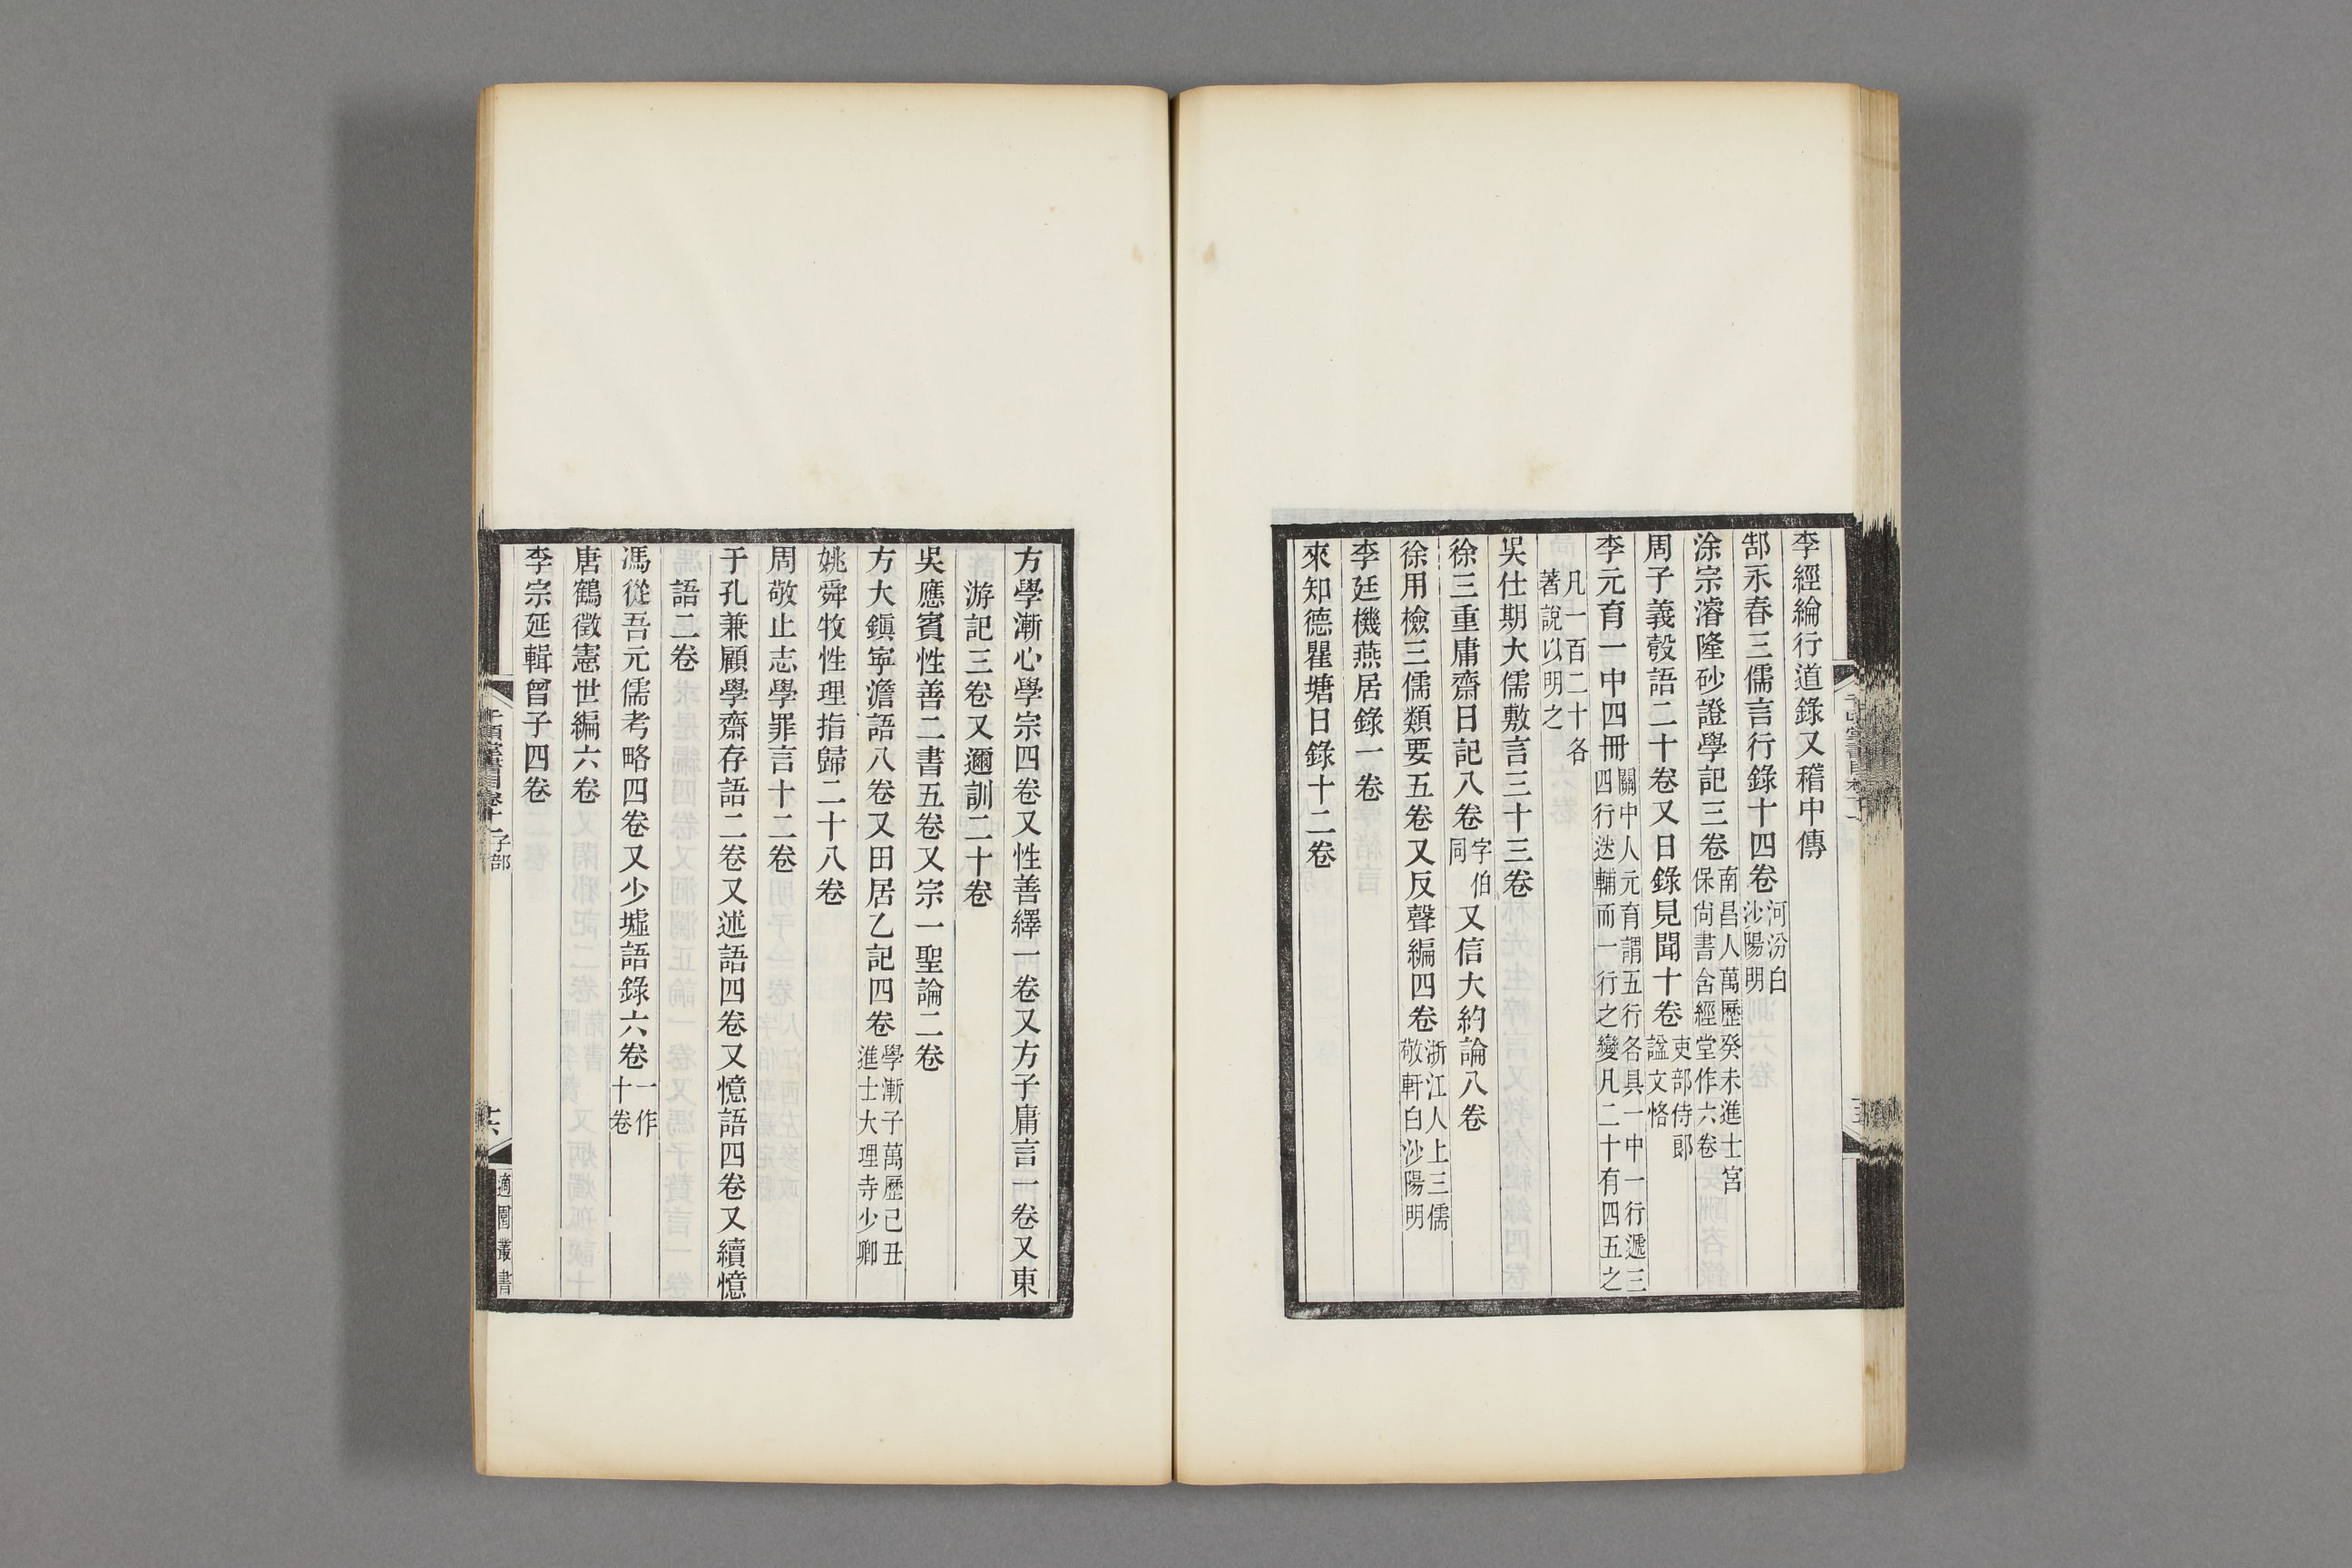 李經綸行道錄又稽中傳
郜永春三儒言行錄十四卷河汾白沙陽明
涂宗濬隆砂證學記三卷南昌人萬歷癸未進士宮保尙書含經堂作六卷
周子義彀語二十卷又日錄見聞十卷吏部侍郎諡文恪
李元育一中四冊關中人元育謂五行各具一中一行遞三四行迭輔而一行之變凡二十有四五之
凡一百二十各著說以明之
吳仕期大儒敷言三十三卷
徐三重庸齋日記八卷字伯同又信大約論八卷
徐用檢三儒類要五卷又反聲編四卷浙江人上三儒敬軒白沙陽明
李廷機燕居錄一卷
來知德瞿塘日錄十二卷
方學漸心學宗四卷又性善繹一卷又方子庸言一卷又東
游記三卷又邇訓二十卷
吳應賓性善二書五卷又宗一聖論二卷
方大鎭寧澹語八卷又田居乙記四卷學漸子萬歷己丑進士大理寺少卿
姚舜牧性理指歸二十八卷
周敬止志學罪言十二卷
于孔兼顧學齋存語二卷又述語四卷又憶語四卷又續憶
語二卷
馮從吾元儒考略四卷又少墟語錄六卷一作十卷
唐鶴徵憲世編六卷
李宗延輯曾子四卷
千頃堂書目卷十一子部
十六
適園叢書